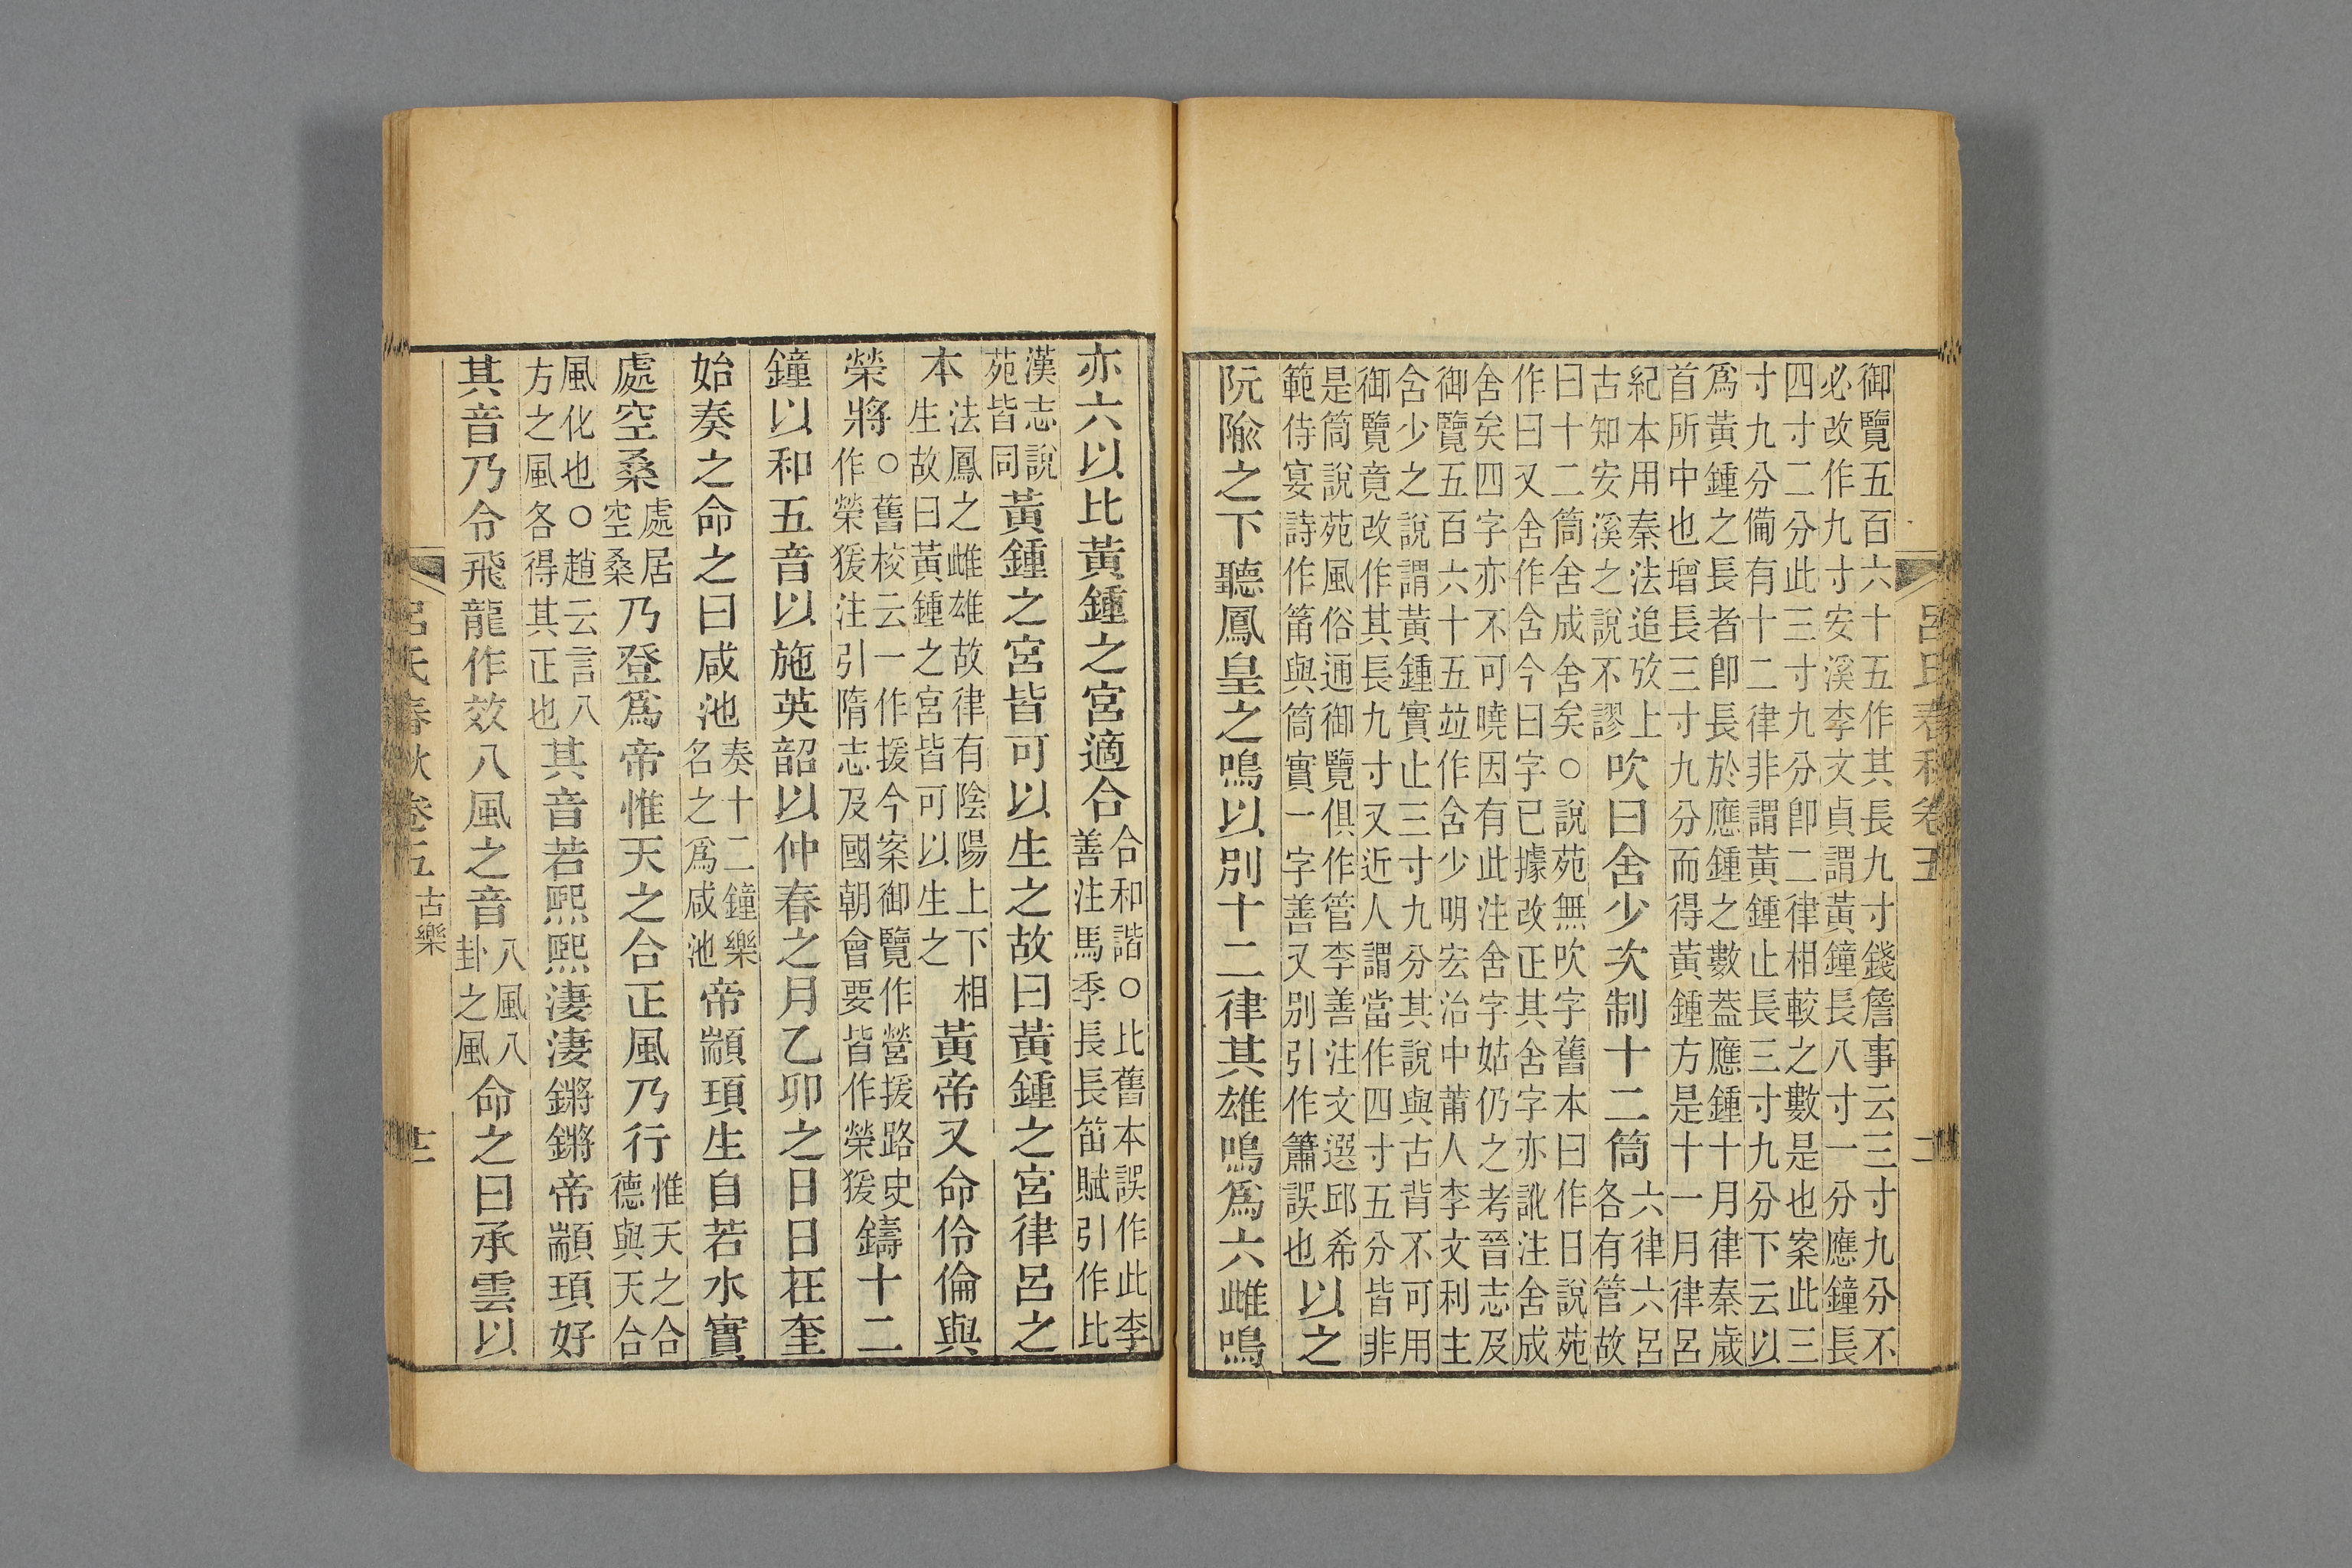 呂氏春秋卷五
御覽五百六十五作其長九寸錢詹事云三寸九分不
必改作九寸安溪李文貞謂黃鐘長八寸一分應鐘長
四寸二分此三寸九分卽二律相較之數是也案此三
寸九分備有十二律非謂黃鍾止長三寸九分下云以
爲黃鍾之長者卽長於應鍾之數葢應鍾十月律秦歲
首所中也增長三寸九分而得黃鍾方是十一月律呂
紀本用秦法追攷上古知安溪之說不謬吹曰舍少次制十二筒六律六呂各有管故
曰十二筒舍成舍矣○說苑無吹字舊本曰作日說苑
作曰又舍作含今曰字已據改正其舍字亦訛注舍成
舍矣四字亦不可曉因有此注舍字姑仍之考晉志及
御覽五百六十五竝作含少明宏治中莆人李文利主
含少之說謂黃鍾實止三寸九分其說與古背不可用
御覽竟改作其長九寸又近人謂當作四寸五分皆非
是筒說苑風俗通御覽俱作管李善注文選邱希範侍宴詩作筩與筒實一字善又別引作簫誤也以之
阮隃之下聽鳳皇之鳴以別十二律其雄鳴爲六雌鳴
亦六以比黃鍾之宮適合合和諧○比舊本誤作此李善注馬季長長笛賦引作比
漢志說苑皆同黃鍾之宮皆可以生之故曰黃鍾之宮律呂之
本法鳳之雌雄故律有陰陽上下相生故曰黃鍾之宮皆可以生之黃帝又命伶倫與
榮將○舊校云一作援今案御覽作營援路史作榮猨注引隋志及國朝會要皆作榮猨鑄十二
鐘以和五音以施英韶以仲春之月乙卯之日日在奎
始奏之命之曰咸池奏十二鐘樂名之爲咸池帝顓頊生自若水實
處空桑處居空桑乃登爲帝惟天之合正風乃行惟天之合德與天合
風化也○趙云言八方之風各得其正也其音若熙熙淒淒鏘鏘帝顓頊好
其音乃令飛龍作效八風之音八風八卦之風命之曰承雲以
呂氏春秋卷五 古樂 十二